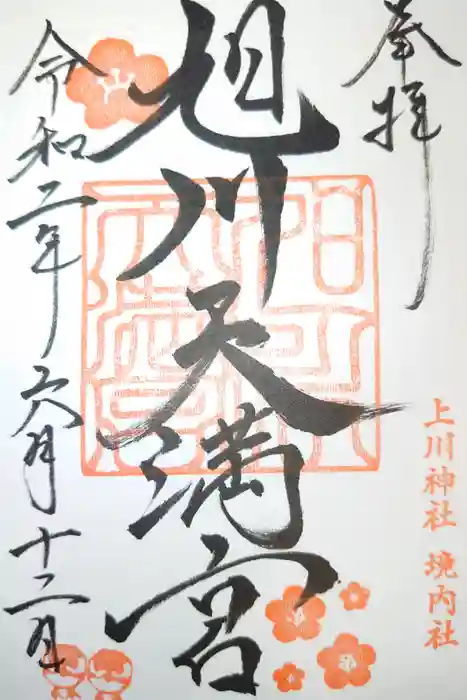 奉拝
上川神社 境内社
旭川天満宮
令和二年六月十二日